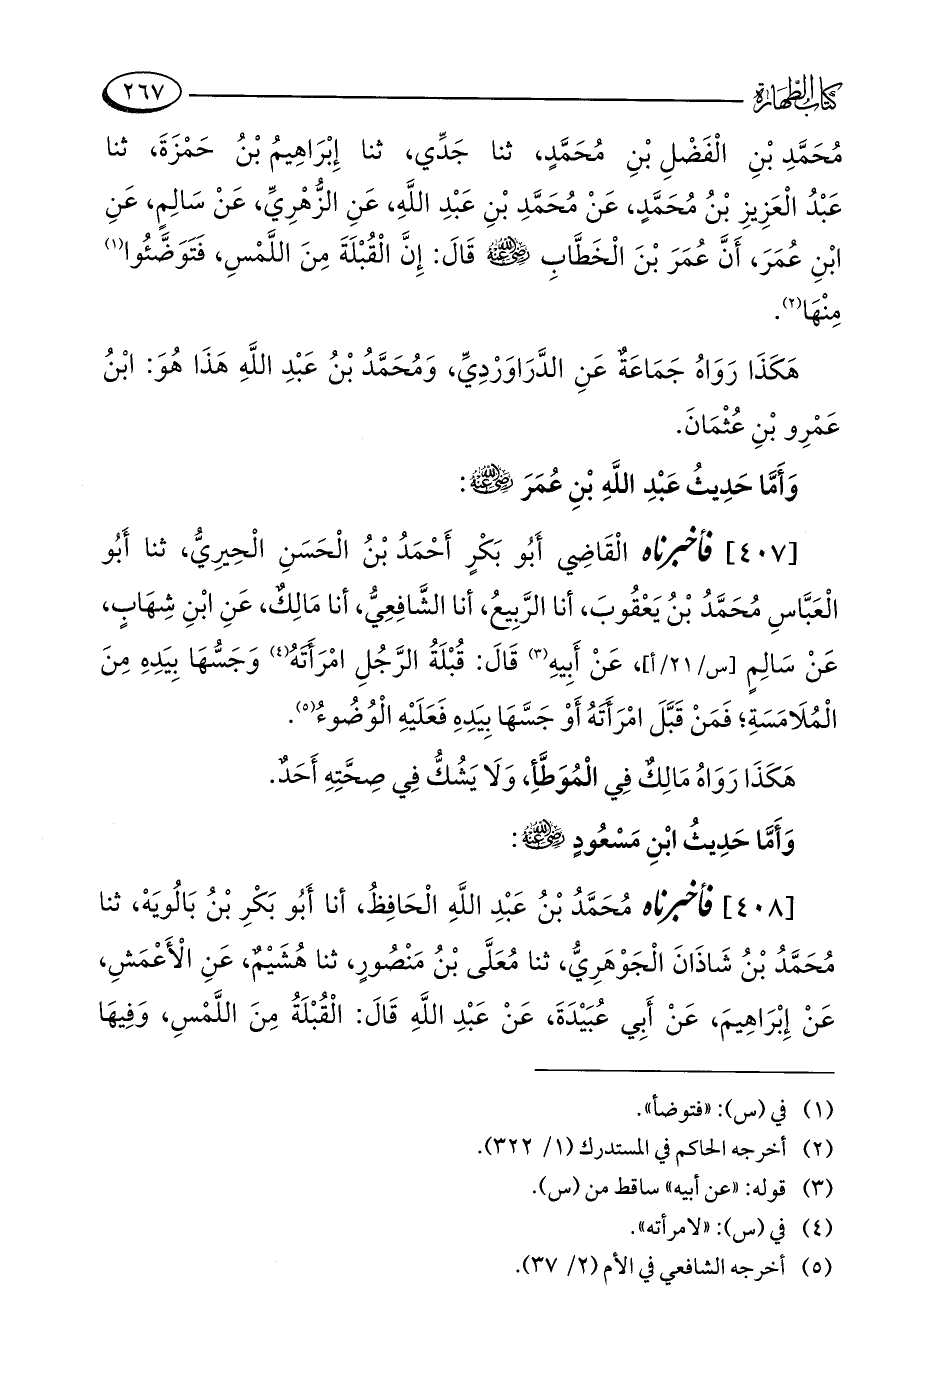 كتاب الطهارة ٢٦٧
مُحَمَّدِ بْنِ الْفَضْلِ بْنِ مُحَمَّدٍ، ثنا جَدِّي، ثنا إِبْرَاهِيمُ بْنُ حَمْزَةَ، ثنا
عَبْدُ الْعَزِيزِ بْنُ مُحَمَّدٍ، عَنْ مُحَمَّدِ بْنِ عَبْدِ اللَّهِ، عَنِ الزُّهْرِيِّ، عَنْ سَالِمٍ، عَنِ
ابْنِ عُمَرَ، أَنَّ عُمَرَ بْنَ الْخَطَّابِ رضي الله عنه قَالَ: إِنَّ الْقُبْلَةَ مِنَ اللَّمْسِ، فَتَوَضَّئُوا(١)
مِنْهَا(٢).
هَكَذَا رَوَاهُ جَمَاعَةٌ عَنِ الدَّرَاوَرْدِيِّ، وَمُحَمَّدُ بْنُ عَبْدِ اللَّهِ هَذَا هُوَ: ابْنُ
عَمْرِو بْنِ عُثْمَانَ.
وَأَمَّا حَدِيثُ عَبْدِ اللَّهِ بْنِ عُمَرَ رضي الله عنه:
[٤٠٧] فأخبرناه الْقَاضِي أَبُو بَكْرٍ أَحْمَدُ بْنُ الْحَسَنِ الْحِيرِيُّ، ثنا أَبُو
الْعَبَّاسِ مُحَمَّدُ بْنُ يَعْقُوبَ، أنا الرَّبِيعُ، أنا الشَّافِعِيُّ، أنا مَالِكٌ، عَنِ ابْنِ شِهَابٍ،
عَنْ سَالِمٍ [س/٢١/أ]، عَنْ أَبِيهِ(٣) قَالَ: قُبْلَةُ الرَّجُلِ امْرَأَتَهُ(٤) وَجَسُّهَا بِيَدِهِ مِنَ
الْمُلَامَسَةِ؛ فَمَنْ قَبَّلَ امْرَأَتَهُ أَوْ جَسَّهَا بِيَدِهِ فَعَلَيْهِ الْوُضُوءُ(٥).
هَكَذَا رَوَاهُ مَالِكٌ فِي الْمُوَطَّأِ، وَلَا يَشُكُّ فِي صِحَّتِهِ أَحَدٌ.
وَأَمَّا حَدِيثُ ابْنِ مَسْعُودٍ رضي الله عنه:
[٤٠٨] فأخبرناه مُحَمَّدُ بْنُ عَبْدِ اللَّهِ الْحَافِظُ، أنا أَبُو بَكْرِ بْنُ بَالُويَهْ، ثنا
مُحَمَّدُ بْنُ شَاذَانَ الْجَوْهَرِيُّ، ثنا مُعَلَّى بْنُ مَنْصُورٍ، ثنا هُشَيْمٌ، عَنِ الْأَعْمَشِ،
عَنْ إِبْرَاهِيمَ، عَنْ أَبِي عُبَيْدَةَ، عَنْ عَبْدِ اللَّهِ قَالَ: الْقُبْلَةُ مِنَ اللَّمْسِ، وَفِيهَا
(١) في (س): «فتوضأ».
(٢) أخرجه الحاكم في المستدرك (١/ ٣٢٢).
(٣) قوله: «عن أبيه» ساقط من (س).
(٤) في (س): «لامرأته».
(٥) أخرجه الشافعي في الأم (٢/ ٣٧).